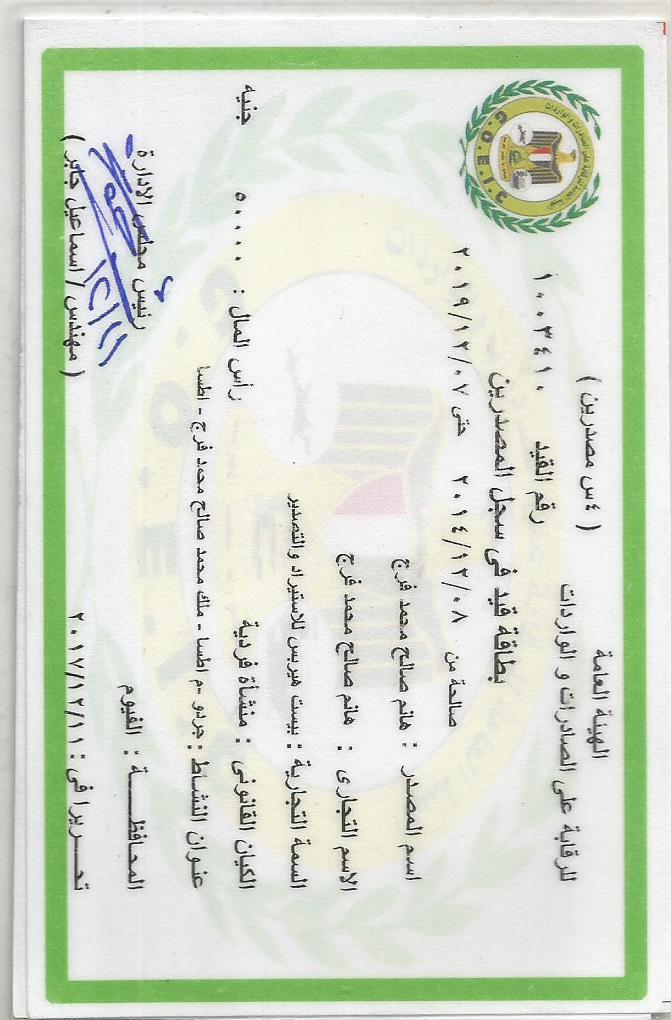 الهيئة العامة
للرقابة على الصادرات و الواردات
( ٤س مصدرين )
G.O.E.I.C
رقم القيد ١٠٠٣٤١٠
بطاقة قيد فى سجل المصدرين
صالحة من ٢٠١٤/١٢/٠٨ حتى ٢٠١٩/١٢/٠٧
اسم المصدر : هانم صالح محمد فرج
الاسم التجارى : هانم صالح محمد فرج
السمة التجارية : بيست هيربس للاستيراد والتصدير
الكيان القانونى : منشأة فردية رأس المال : ٥٠٠٠٠ جنيه
عنوان النشاط : جردو -م اطسا - ملك محمد صالح محمد فرج - اطسا
المحافظـــــة : الفيوم
تحـــريرا فى : ٢٠١٧/١٢/١١
رئيس مجلس الإدارة
( مهندس / اسماعيل جابر )